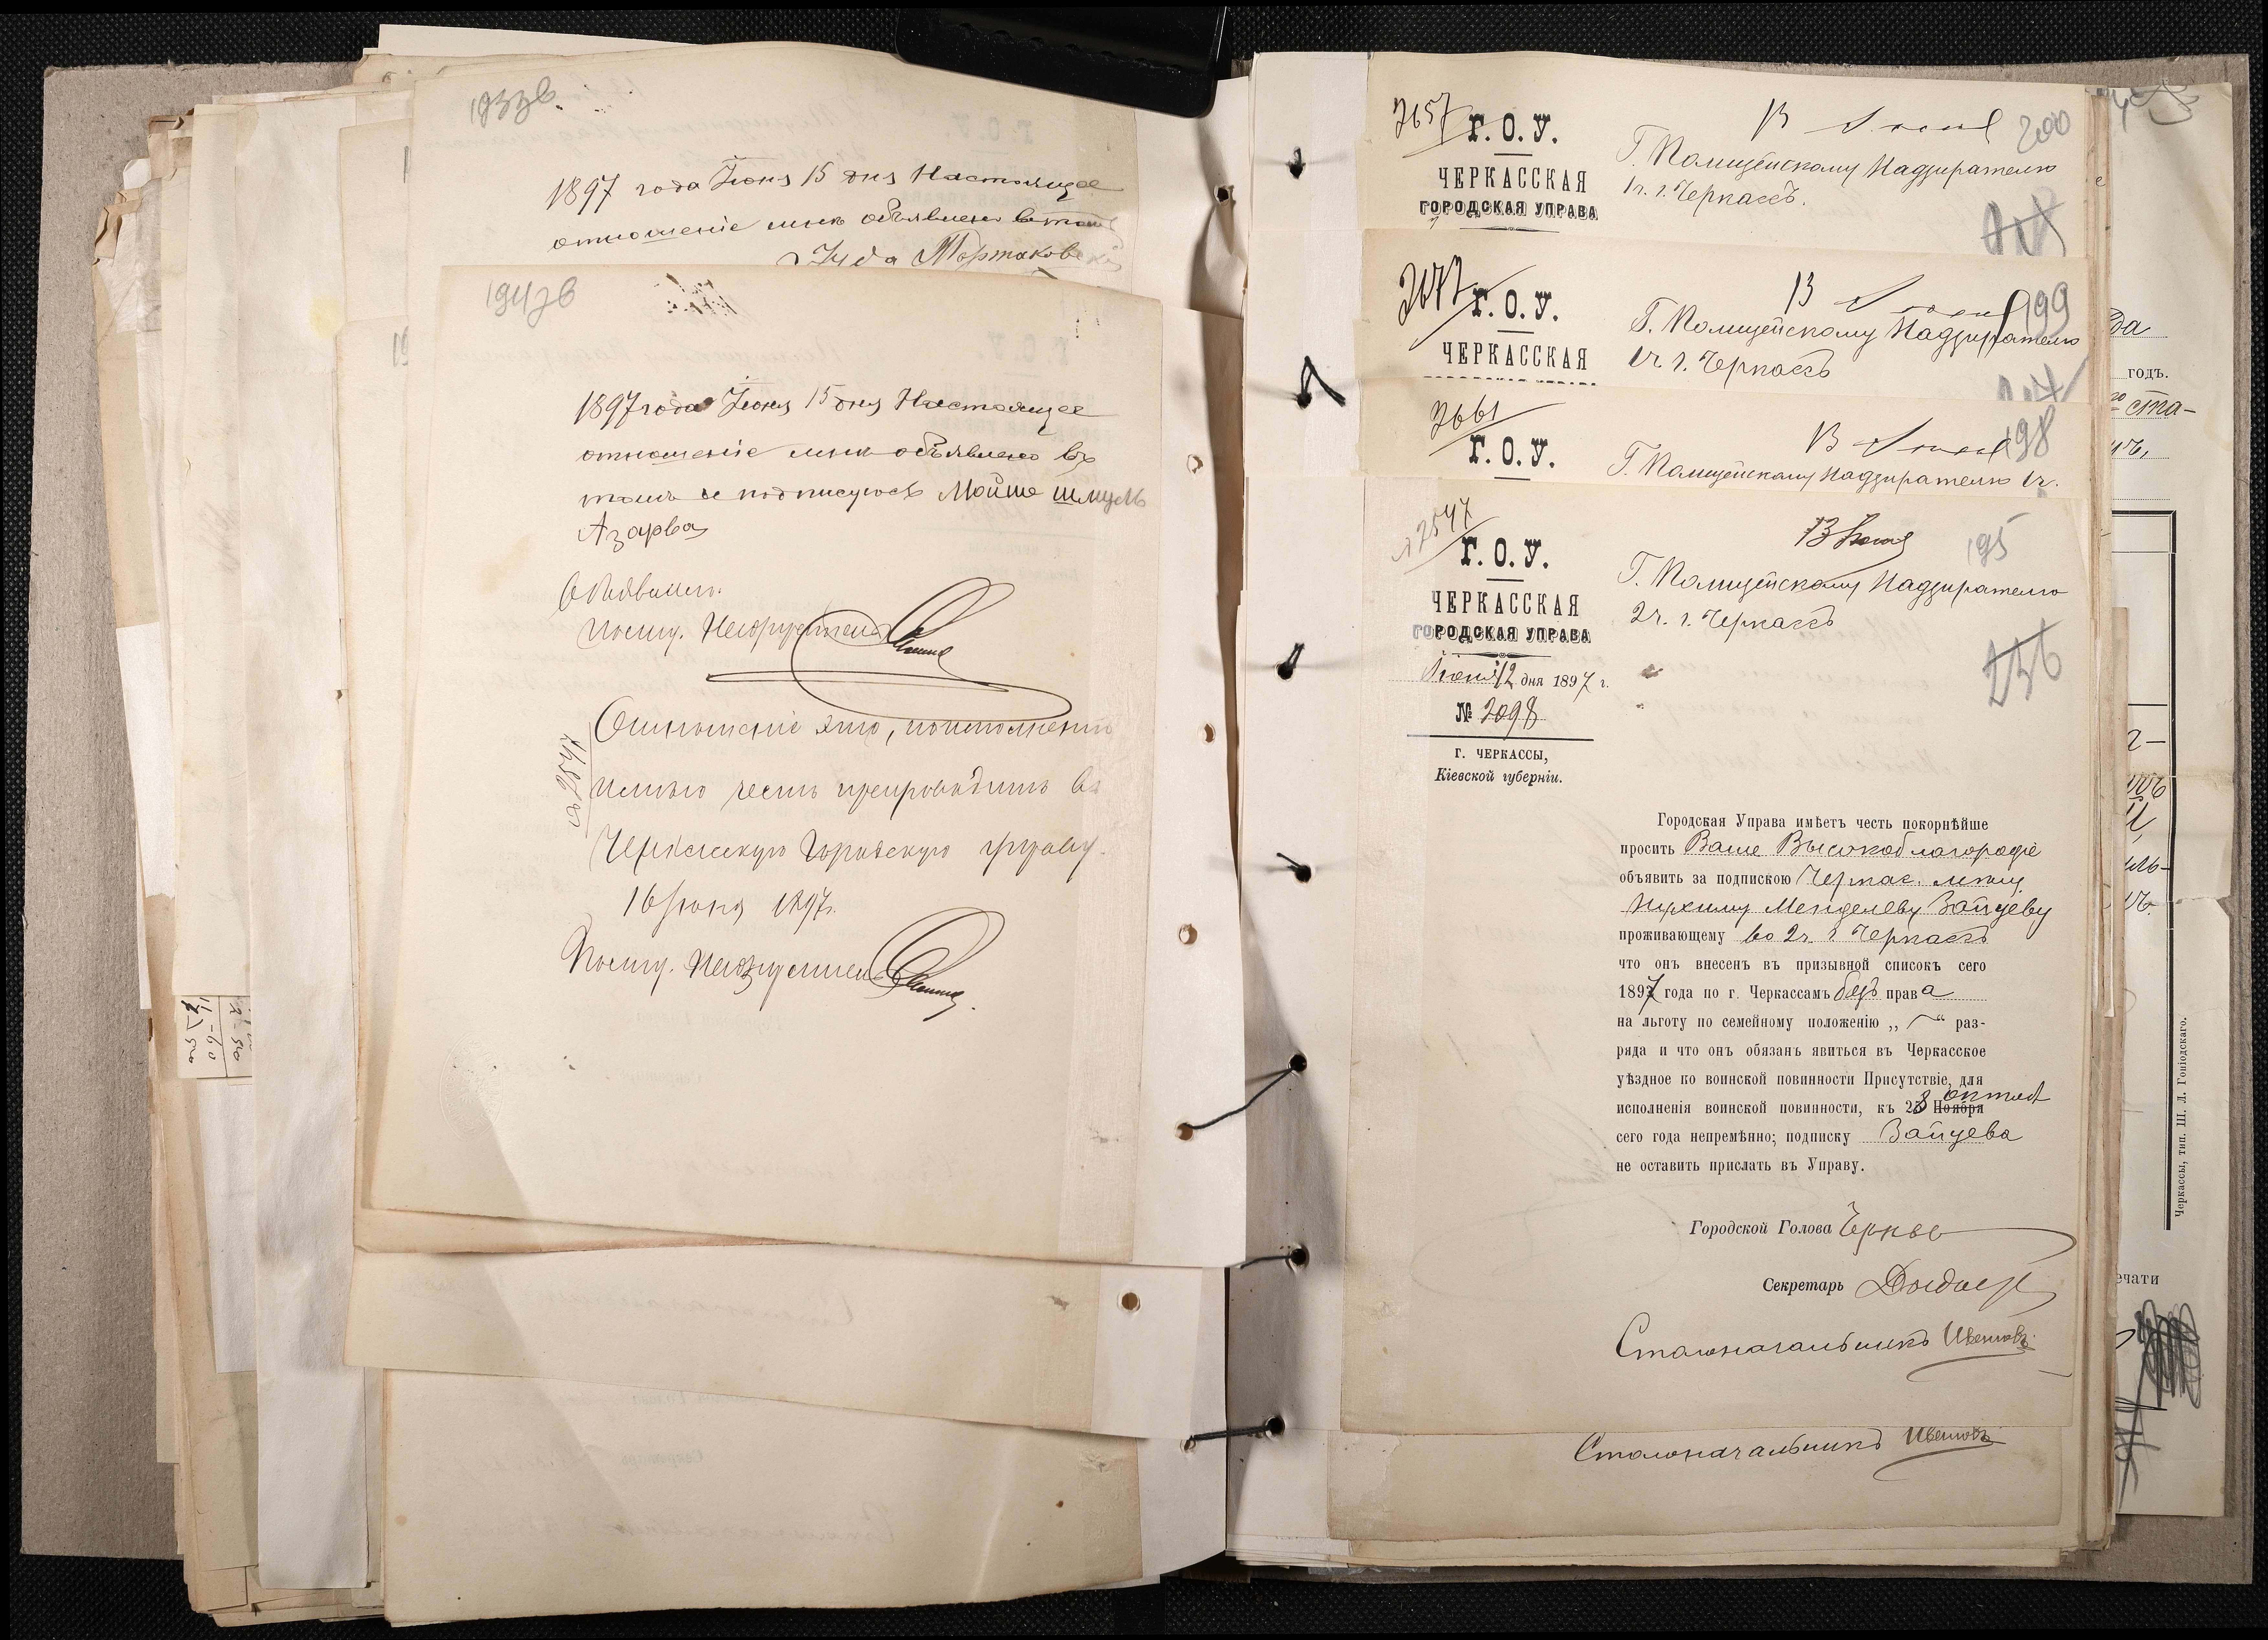 193зв
1897 года Іюня 15 дня Настоящее
отношеніе мнѣ объявлено в томъ
Іуда Портаковскій
194зв
1897 года Іюня 15 дня Настоящее
отношеніе мнѣ объявлено въ
томъ и подписуюсъ Мойше шмуль
Азарва
Объявилъ.
Отношеніе это, по исполненіи
имѣю честь препроводить въ
Черкасскую Городскую управу.
16 Іюня 1897г.
№ 2547
2657
Г. О. У.
ЧЕРКАССКАЯ
ГОРОДСКАЯ УПРАВА
В
200
Г. Полицейскому Надзирателю
1ч. г. Черкассъ.
Г. О. У.
ЧЕРКАССКАЯ
В
199
Г. Полицейскому Надзирателю
1ч. г. Черкассъ
2661
Г. О. У.
В
198
Г. Полицейскому Надзирателю 1ч.
2547
Г. О. У.
ЧЕРКАССКАЯ
ГОРОДСКАЯ УПРАВА
Іюня 12 дня 1897 г.
№ 2098
г. ЧЕРКАССЫ,
Кіевской губерніи.
195
Г. Полицейскому Надзирателю
2ч. г. Черкассъ
236
Городская Управа имѣетъ честь покорнѣйше
просить Ваше Высокоблагородіе
объявить за подпискою Черкас. мѣщ.
Нухиму Менделеву Зайцеву
проживающему во 2ч. г. Черкассъ
что онъ внесенъ въ призывной списокъ сего
1897 года по г. Черкассамъ безъ права
на льготу по семейному положенію „ — “ раз-
ряда и что онъ обязанъ явиться въ Черкасское
уѣздное по воинской повинности Присутствіе, для
исполненія воинской повинности, къ 23 Ноября октяб
сего года непремѣнно; подписку Зайцева
не оставить прислать въ Управу.
Городской Голова
Секретарь
Столоначальникъ Ивановъ
Столоначальникъ Ивановъ
да
годъ.
ста-
ечати
Черкассы, тип. Ш. Л. Гоніодскаго.